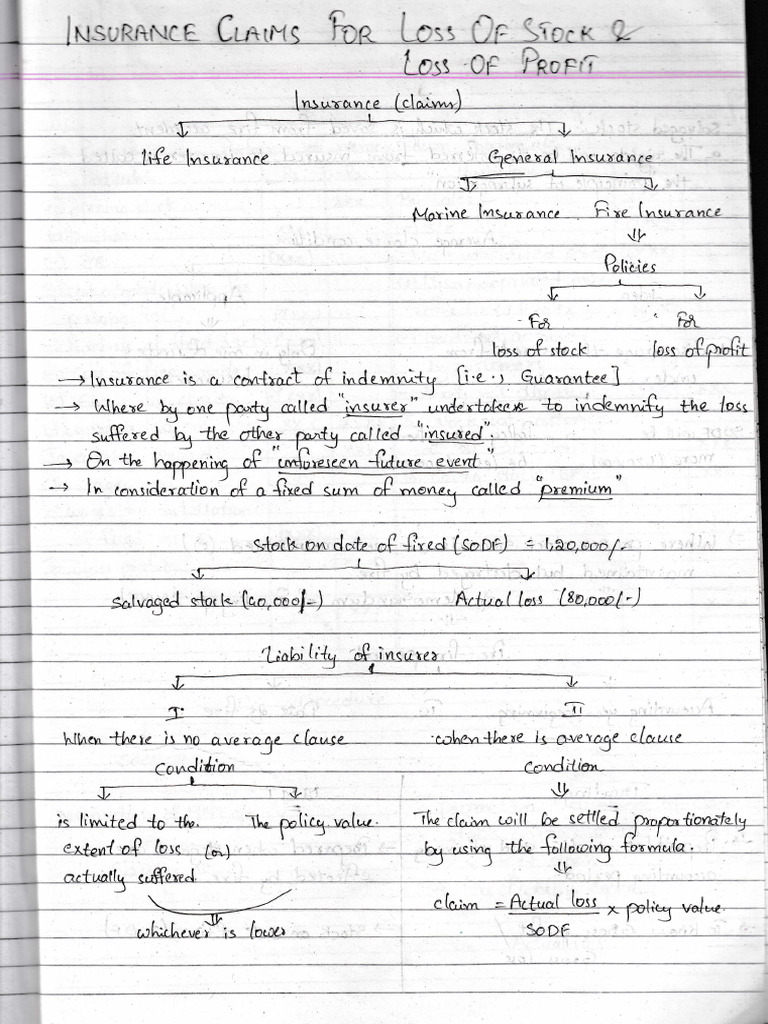 INSURANCE CLAIMS FOR LOSS OF STOCK &
LOSS OF PROFIT
Insurance (claims)
Life Insurance General Insurance
Marine Insurance Fire Insurance
Policies
For For
loss of stock loss of profit
→ Insurance is a contract of indemnity [i.e., Guarantee]
→ Where by one party called "insurer" undertakes to indemnify the loss
suffered by the other party called "insured".
→ On the happening of "unforeseen future event"
→ In consideration of a fixed sum of money called "premium"
Stock on date of fired (SODF) = 1,20,000/-
Salvaged stock (40,000/-) Actual loss (80,000/-)
Liability of insurer
I. II
When there is no average clause when there is average clause
Condition Condition
is limited to the The policy value. The claim will be settled proportionately
extent of loss (or) by using the following formula.
actually suffered
claim = Actual loss / SODF × policy value.
whichever is lower